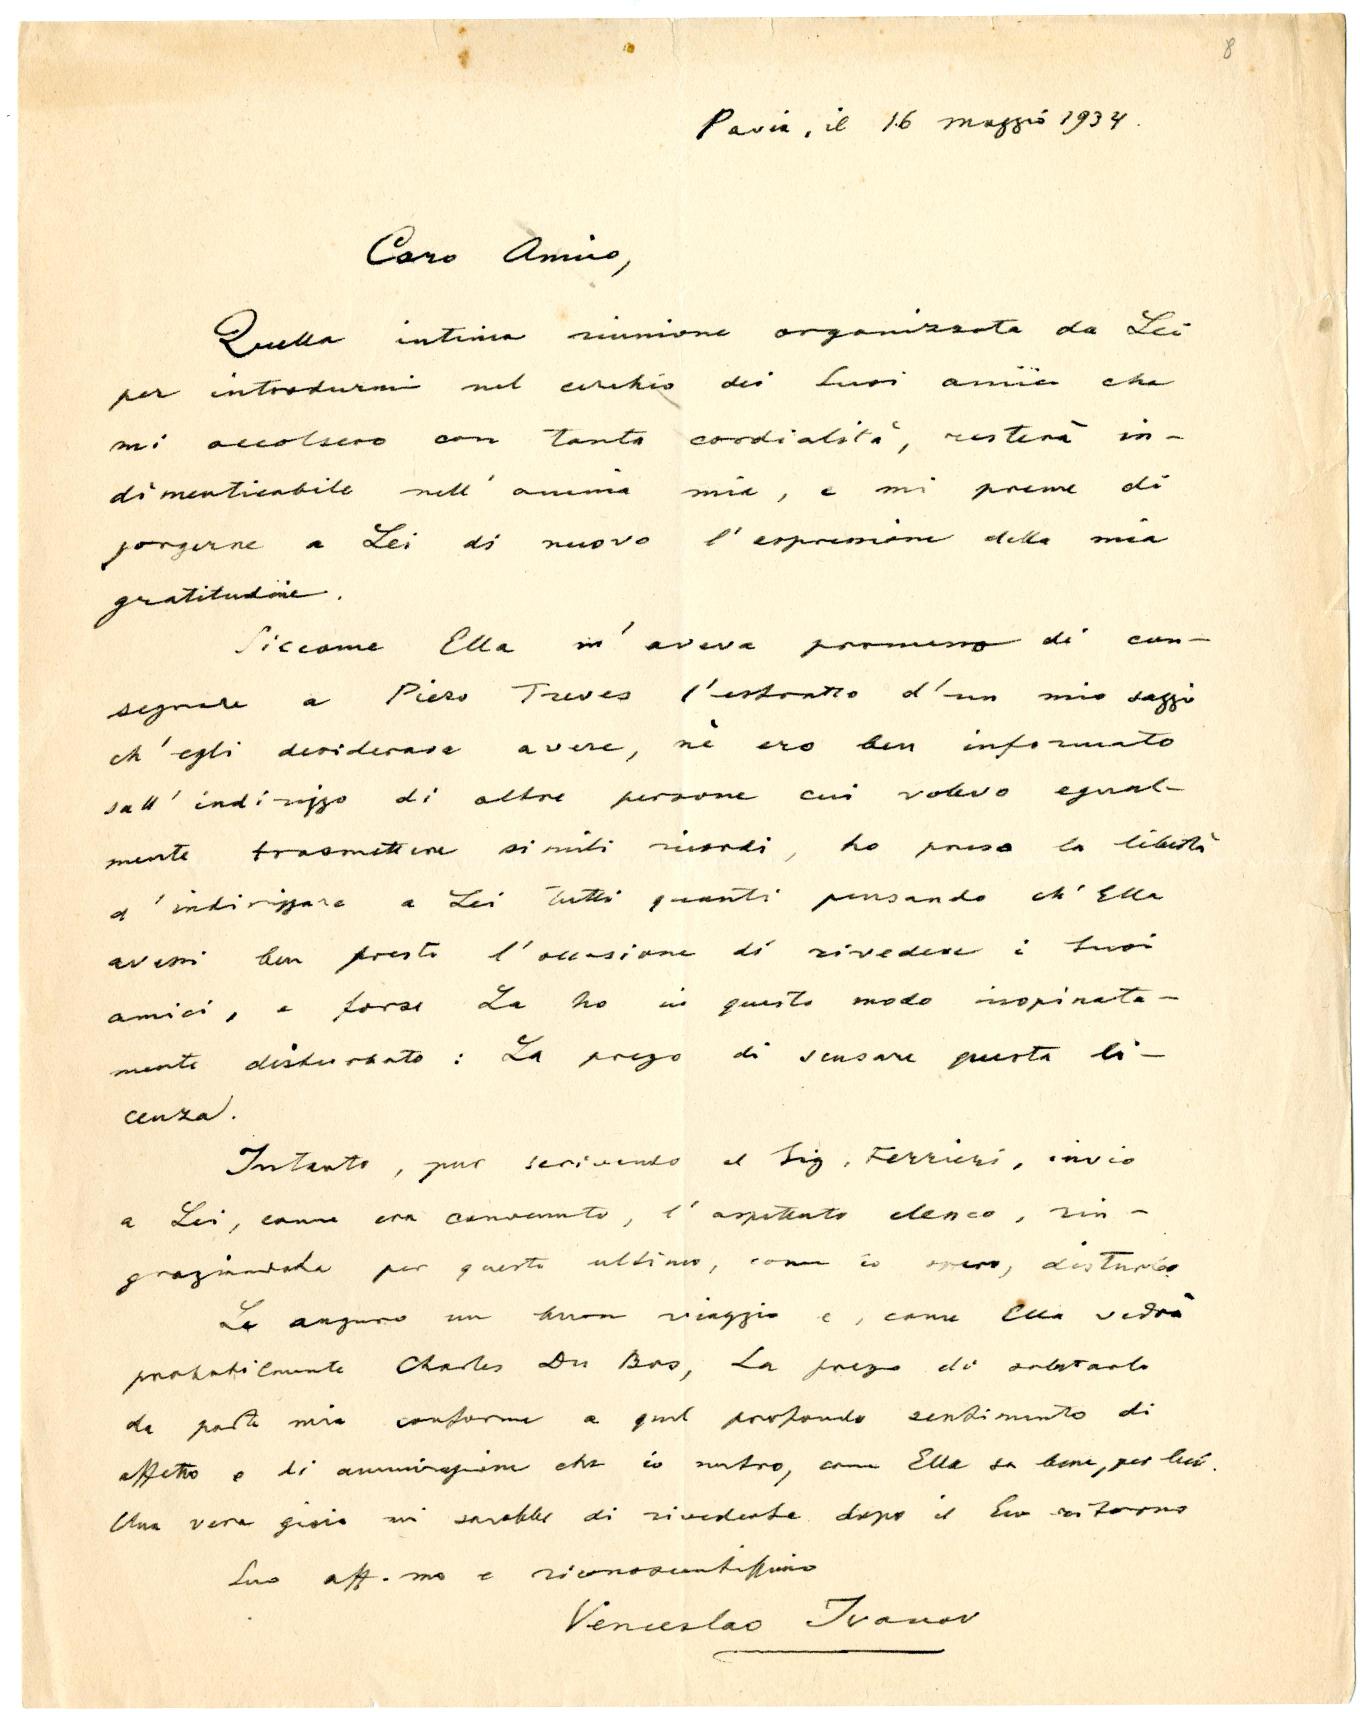 8
Pavia, il 16 maggio 1934.
Caro Amico,
Quella intima riunione organizzata da Lei
per introdurmi nel cerchio dei Suoi amici che
mi accolsero con tanta cordialità, resterà in-
dimenticabile nell'anima mia, e mi preme di
porgerne a Lei di nuovo l'espressione della mia
gratitudine.
Siccome Ella m'aveva promesso di con-
segnare a Piero Treves l'estratto d'un mio saggio
ch'egli desiderava avere, nè ero ben informato
sull'indirizzo di altre persone cui volevo egual-
mente trasmettere simili ricordi, ho preso la libertà
d'indirizzare a Lei tutti quanti pensando ch'Ella
avessi ben presto l'occasione di rivedere i Suoi
amici, e forse La ho in questo modo inopinata-
mente disturbato: La prego di scusare questa li-
cenza.
Intanto, pur scrivendo al Sig. Ferrieri, invio
a Lei, come era convenuto, l'aspettato elenco, rin-
graziandola per questo ultimo, come io spero, disturbo.
Le auguro un buon viaggio e, come Ella vedrà
probabilmente Charles Du Bos, La prego di salutarlo
da parte mia conforme a quel profondo sentimento di
affetto e di ammirazione che io nutro, come Ella sa bene, per lui.
Una vera gioia mi sarebbe di rivederla dopo il Suo ritorno
Suo aff.mo e riconoscentissimo
Venceslao Ivanov